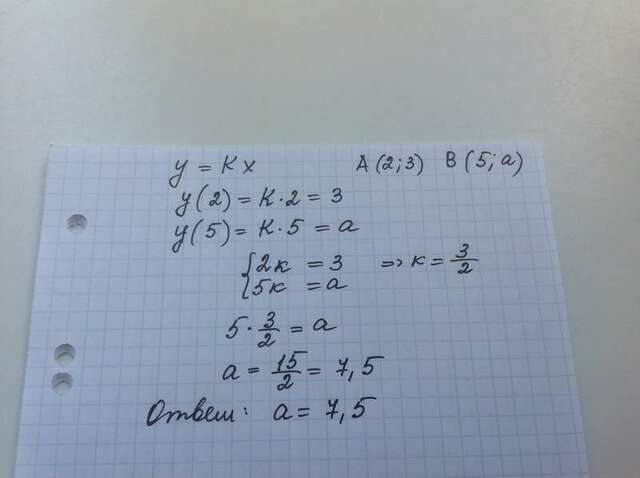 y = Kx A(2;3) B(5;a)
y(2) = K·2 = 3
y(5) = K·5 = a
{2к = 3 => к = 3/2
{5к = a
5·3/2 = a
a = 15/2 = 7,5
Ответ: a = 7,5